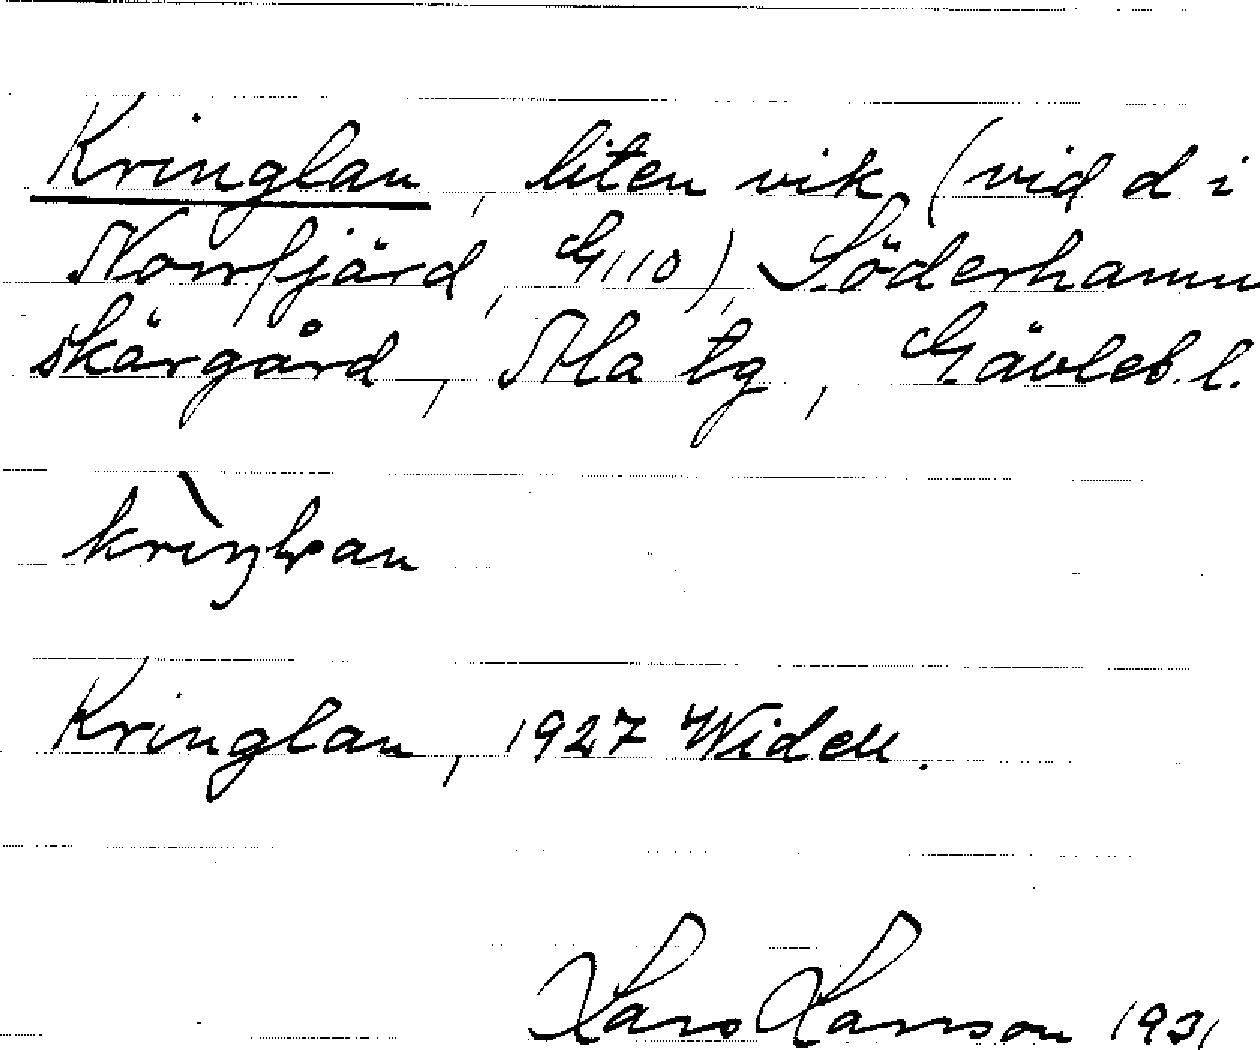 Kringlan, liten vik, (vid d i
Norrfjärd, G110), Söderhamns
skärgård, Ala tg, Gävleb. l.
Kringlan, 1927 Widell.
Lars Larsson 1931